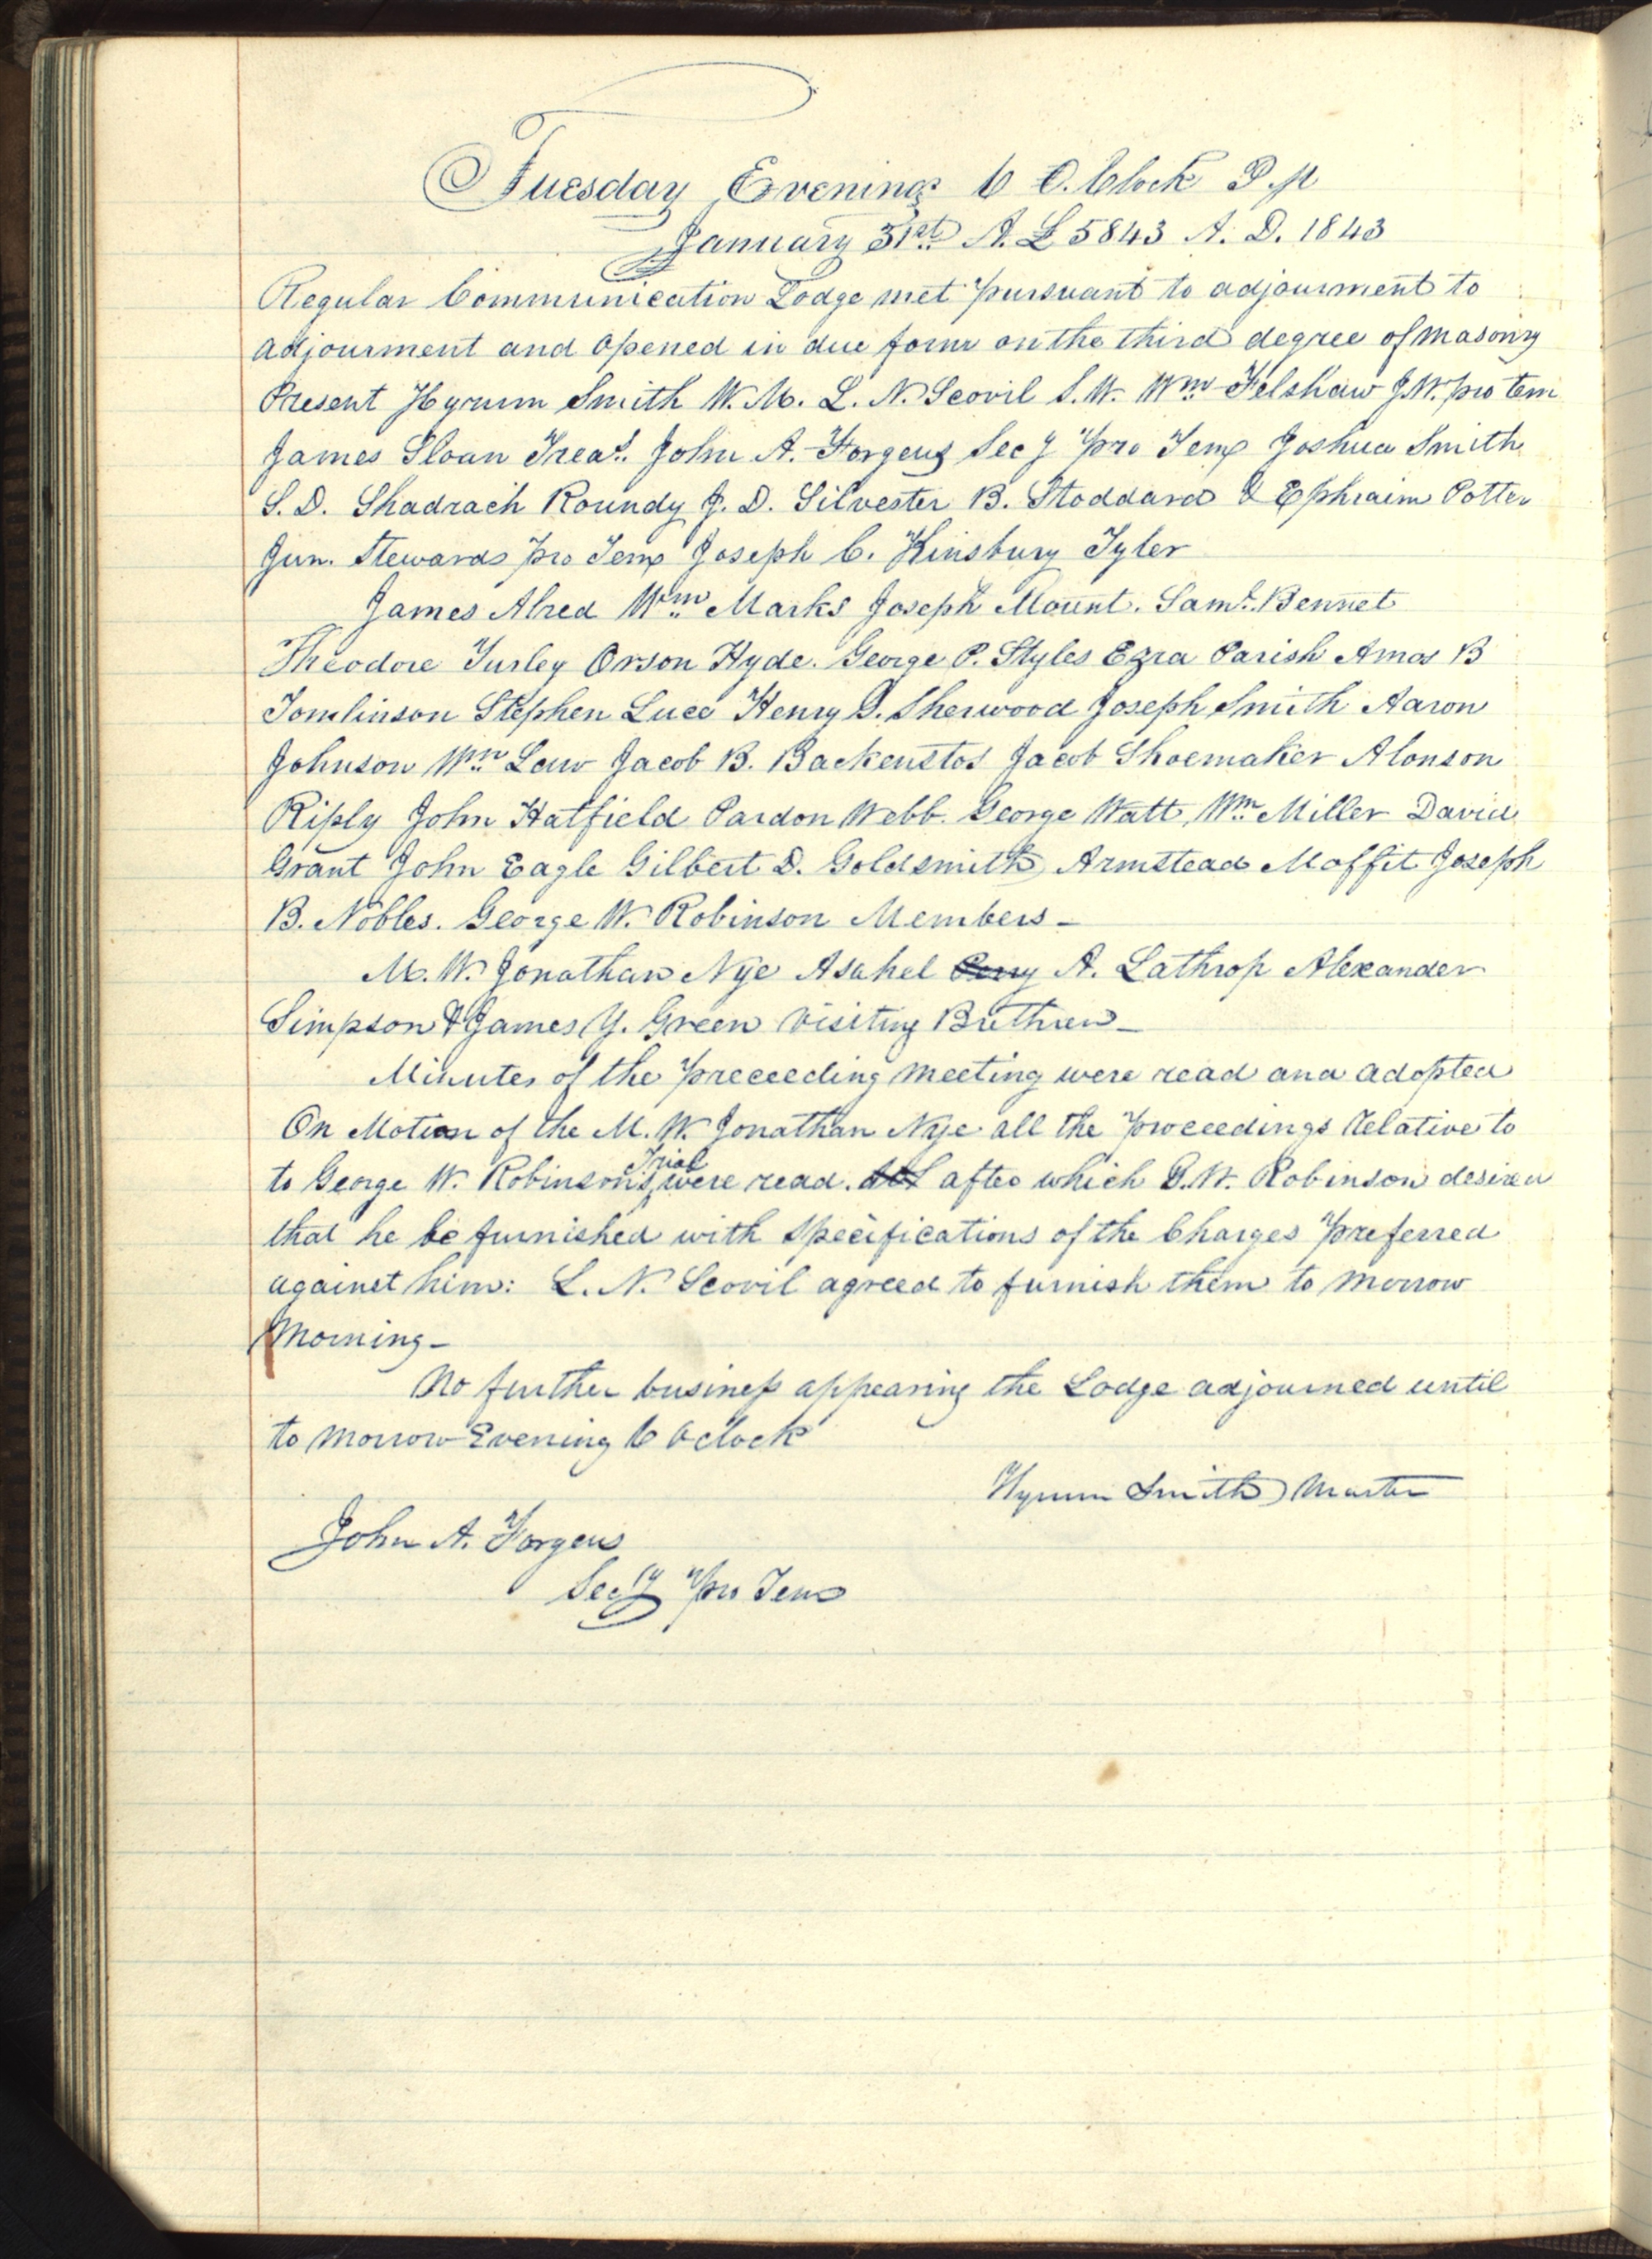 Tuesday Evening 6 O. Clock P. M
January 31st A. L 5843 A. D. 1843
Regular Communication Lodge met pursuant to adjourment to
adjourment and opened in due form on the third degree of Masonry
Present Hyrum Smith W. M. L. N. Scovil S. W. Wm Felshaw J. W. pro tem
James Sloan Treas. John A. Forgeus Secy pro Tem Joshua Smith
S. D. Shadrach Roundy J. D. Silvester B. Stoddard & Ephraim Potter
Jun. Stewards pro Tem Joseph C. Kinsbury Tyler
James Alred Wm Marks Joseph Mount. Saml. Bennet
Theodore Turley Orson Hyde. George P. Styles Ezra Parish Amos B
Tomlinson Stephen Luce Henry G. Sherwood Joseph Smith Aaron
Johnson Wm Law Jacob B. Backenstos Jacob Shoemaker Alonson
Riply John Hatfield Pardon Webb. George Watt, Wm Miller David
Grant John Eagle Gilbert D. Goldsmith Armstead Moffit Joseph
B. Nobles. George W. Robinson Members –
M. W. Jonathan Nye Asahel Perry A. Lathrop Alexander
Simpson & James Y. Green Visiting Brethren –
Minutes of the preceeding meeting were read and adopted
On Motion of the M. W. Jonathan Nye all the proceedings relative to
to George W. Robinson's Trial were read. after which G. W. Robinson desired
that he be furnished with specifications of the Charges preferred
against him: L. N. Scovil agreed to furnish them to morrow
Morning –
No further business appearing the Lodge adjourned until
to morrow Evening 6 oclock
Hyrum Smith Master
John A. Forgeus
Secy pro Tem